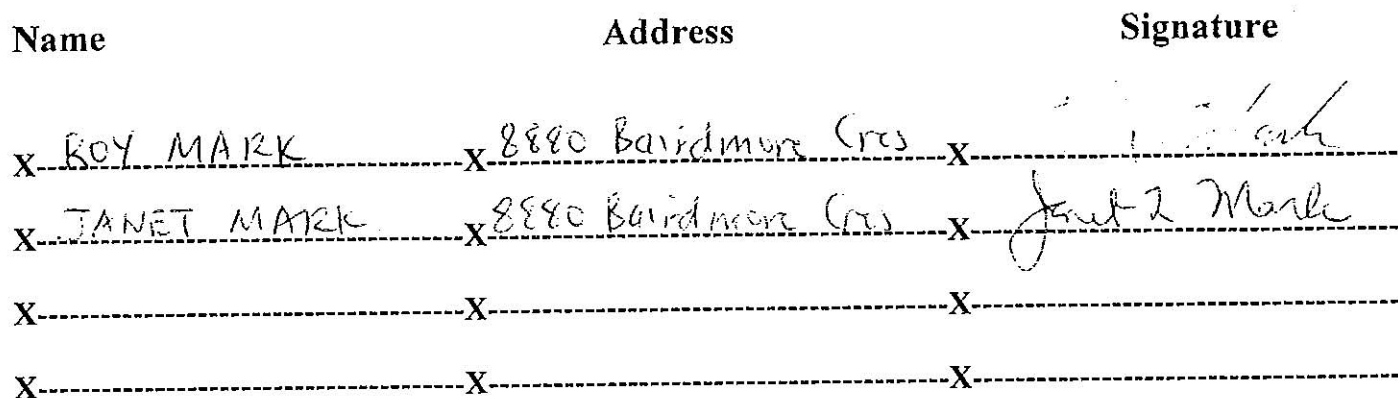 Name Address Signature
X ROY MARK X 8880 Bairdmore Cres X Mark
X JANET MARK X 8880 Bairdmore Cres X Janet L Mark
X X X
X X X